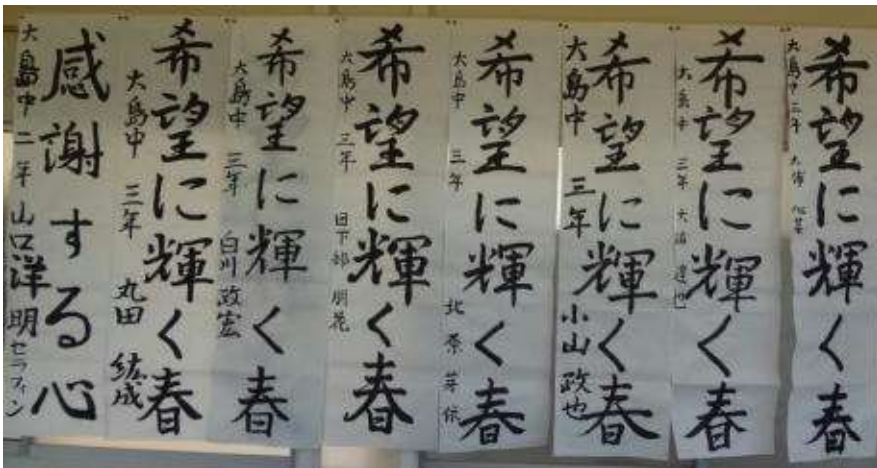 希望に輝く春
大島中 三年
希望に輝く春
大島中 三年
希望に輝く春
大島中 三年 小山 政也
希望に輝く春
大島中 三年 北原 芽依
希望に輝く春
大島中 三年 日下部 朋花
希望に輝く春
大島中 三年 白川 政宏
希望に輝く春
大島中 三年 丸田 紘成
感謝する心
大島中 二年 山口洋明セラフィン